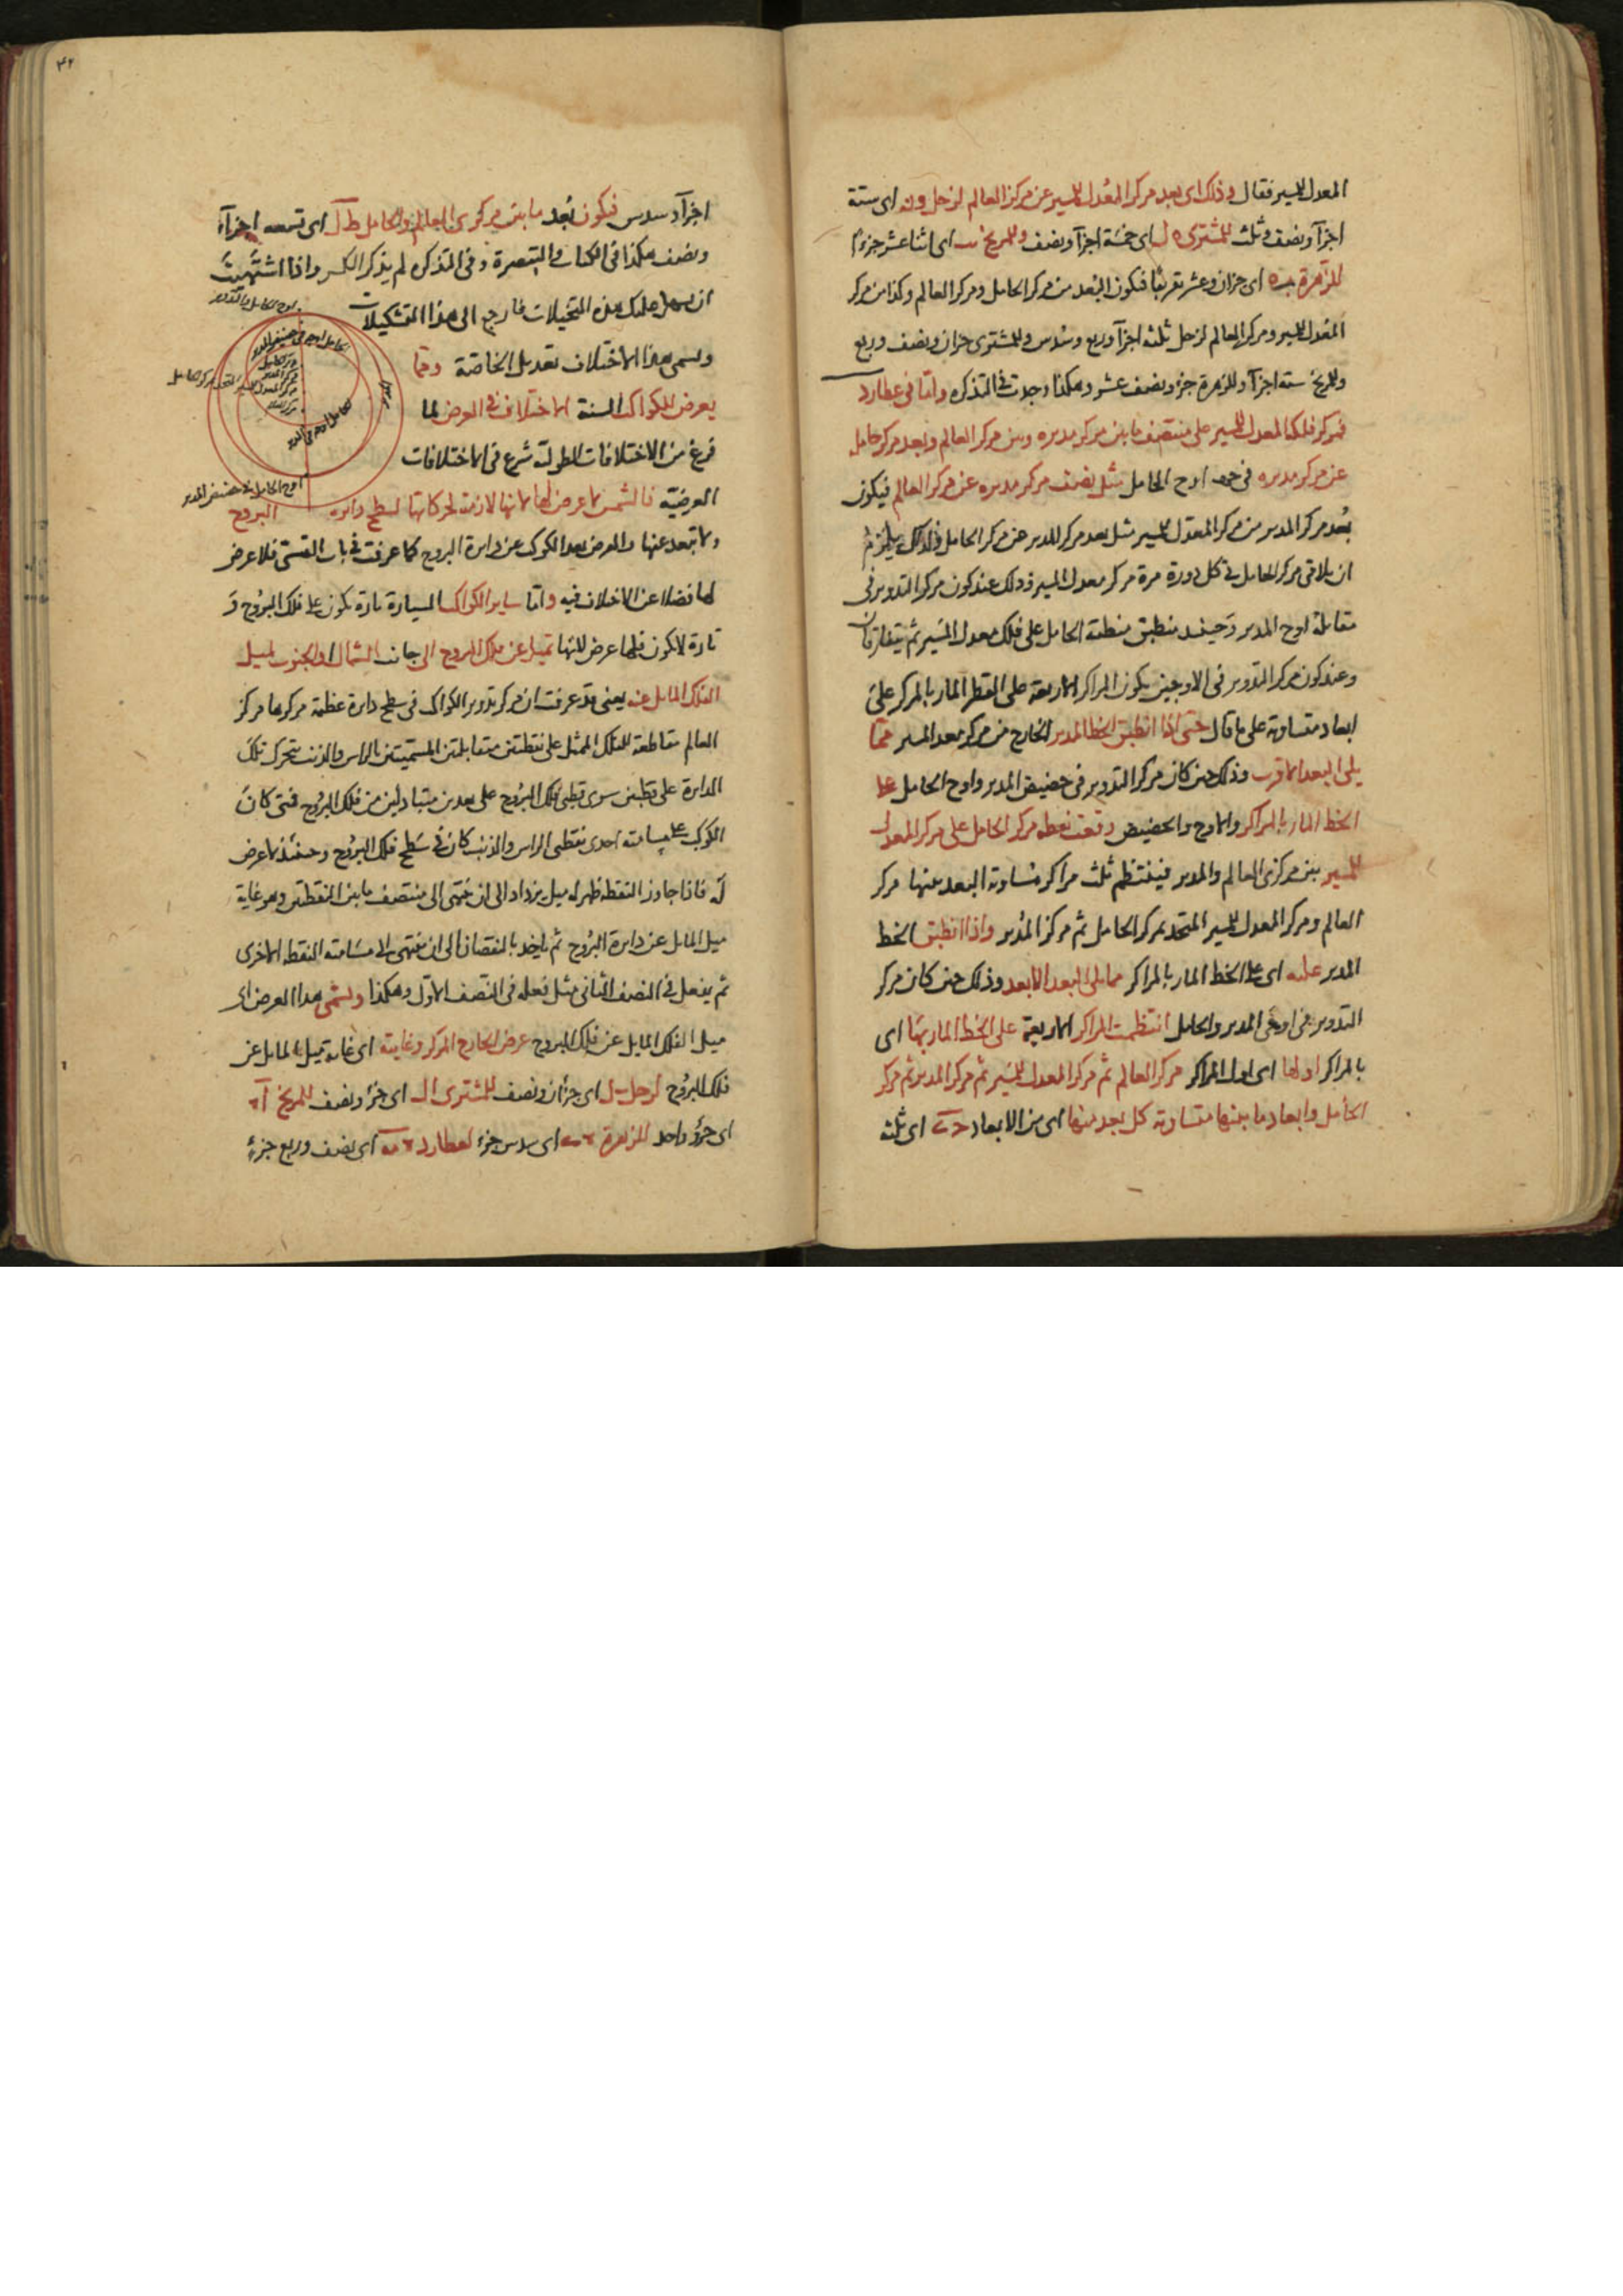 المعدل للمسير فقال وذلك اى بعد مركز المعدل للمسير عن مركز العالم لزحل و ن اى ستة
اجزآ ونصف وثلث للمشترى ه ل اى خمسة اجزآ ونصف وللمريخ يب اى اثنا عشر جزءا
للزهرة ب ه اى جزآن وعشر تقريبا فيكون البعد من مركز الحامل ومركز العالم وكذا من مركز
المعدل للمسير ومركز العالم لزحل ثلثه اجزآ وربع وسدس وللمشترى جزان ونصف وربع
وللمريخ ستة اجزآ وللزهرة جزء ونصف عشر وهكذا وجدت فى التذكره واما فى عطارد
فمركز فلك المعدل للمسير على منتصف ما بين مركز مديره وبين مركز العالم وبعد مركز حامل
عن مركز مديره فى جهه اوج الحامل مثل نصف مركز مديره عن مركز العالم فيكون
بعد مركز المدير من مركز المعدل للمسير مثل بعد مركز المدير عن مركز الحامل فلذلك يلزم
ان يلاقى مركز الحامل فى كل دورة مرة مركز معدل المسير وذلك عند كون مركز التدوير فى
مقابلة اوج المدير وحينئذ ينطبق منطقة الحامل على فلك معدل المسير ثم يتفارقان
وعند كون مركز التدوير فى الاوجين يكون المراكز الاربعة على القطر المار بالمركز على
ابعاد متساوية على ما قال حتى اذا انطبق الخط المدير الخارج من مركز معدل المسير مما
يلى البعد الاقرب وذلك حين كان مركز التدوير فى حضيض المدير واوج الحامل على
الخط المار بالمراكز والاوج والحضيض وقعت نقطه مركز الحامل على مركز المعدل
للمسير بين مركزى العالم والمدير فينتظم ثلث مراكز متساوية البعد منها مركز
العالم ومركز المعدل للمسير المتحد بمركز الحامل ثم مركز المدير واذا انطبق الخط
المدير عليه اى على الخط المار بالمراكز مما يلى البعد الابعد وذلك حين كان مركز
التدوير فى اوجى المدير والحامل انتظمت المراكز الاربعة على الخط المار بها اى
بالمراكز اولها اى اول المراكز مركز العالم ثم مركز المعدل للمسير ثم مركز المدير ثم مركز
الحامل وابعاد ما بينها متساوية كل بعد منها اى من الابعاد ج ى اى ثلثه
۴۲
اجزآ وسدس فيكون بعد ما بين مركزى العالم والحامل ط ل اى تسعه اجزآء
ونصف هكذا فى الكتاب والتبصرة وفى التذكره لم يذكر الكسر واذا اشتهيت
ان يسهل عليك هذه التخيلات فارجع الى هذا التشكيلات
ويسمى هذا الاختلاف تعديل الخاصة ومما
يعرض للكواكب الستة الاختلاف فى العرض لما
فرغ من الاختلافات الطولية شرع فى الاختلافات
العرضية فالشمس لا عرض لها لانها لازمة لحركاتها لسطح دايره البروج
ولا تبعد عنها والعرض بعد الكوكب عن دايرة البروج كما عرفت فى باب القسى فلا عرض
لها فضلا عن الاختلاف فيه واما ساير الكواكب السيارة تارة يكون على فلك البروج و
تارة لا يكون فلها عرض لانها تميل عن فلك البروج الى جانب الشمال او الجنوب لميل
الفلك المايل عنه يعنى قد عرفت ان مركز تدوير الكواكب فى سطح دايرة عظيمة مركزها مركز
العالم مقاطعة للفلك الممثل على نقطتين متقابلتين المسميتين بالراس والذنب يتحرك تلك
الدايرة على قطبين سوى قطبى فلك البروج على بعدين متبادلين من فلك البروج فمتى كان
الكوكب على مسامته احدى نقطتى الراس والذنب كان فى سطح فلك البروج وحينئذ لا عرض
له فاذا جاوز النقطه ظهر له ميل يزداد الى ان ينتهى الى منتصف ما بين النقطتين وهو غاية
ميل المايل عن دايرة البروج ثم ياخذ بالنقصان الى ان ينتهى الى مسامته النقطه الاخرى
ثم يفعل فى النصف الثانى مثل فعله فى النصف الاول وهكذا ويسمى هذا العرض اى
ميل الفلك المايل عن فلك البروج عرض الخارج المركز وغايته اى غاية ميل المايل عن
فلك البروج لزحل ب ل اى جزآن ونصف للمشترى ا ل اى جزء ونصف للمريخ ا
اى جزء واحد للزهرة ى اى سدس جزء لعطارد مه اى نصف وربع جزء